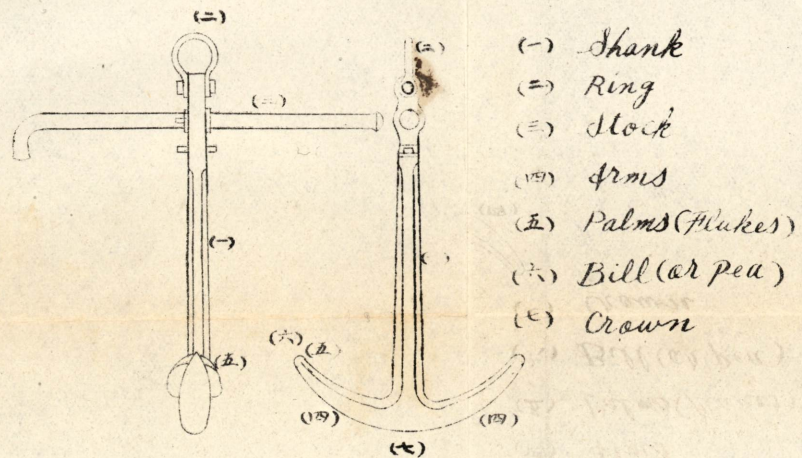 (二)
(三)
(一)
(五)
(二)
(一)
(六) (五)
(四) (四)
(七)
(一) Shank
(二) Ring
(三) Stock
(四) Arms
(五) Palms (Flukes)
(六) Bill (or Pea)
(七) Crown